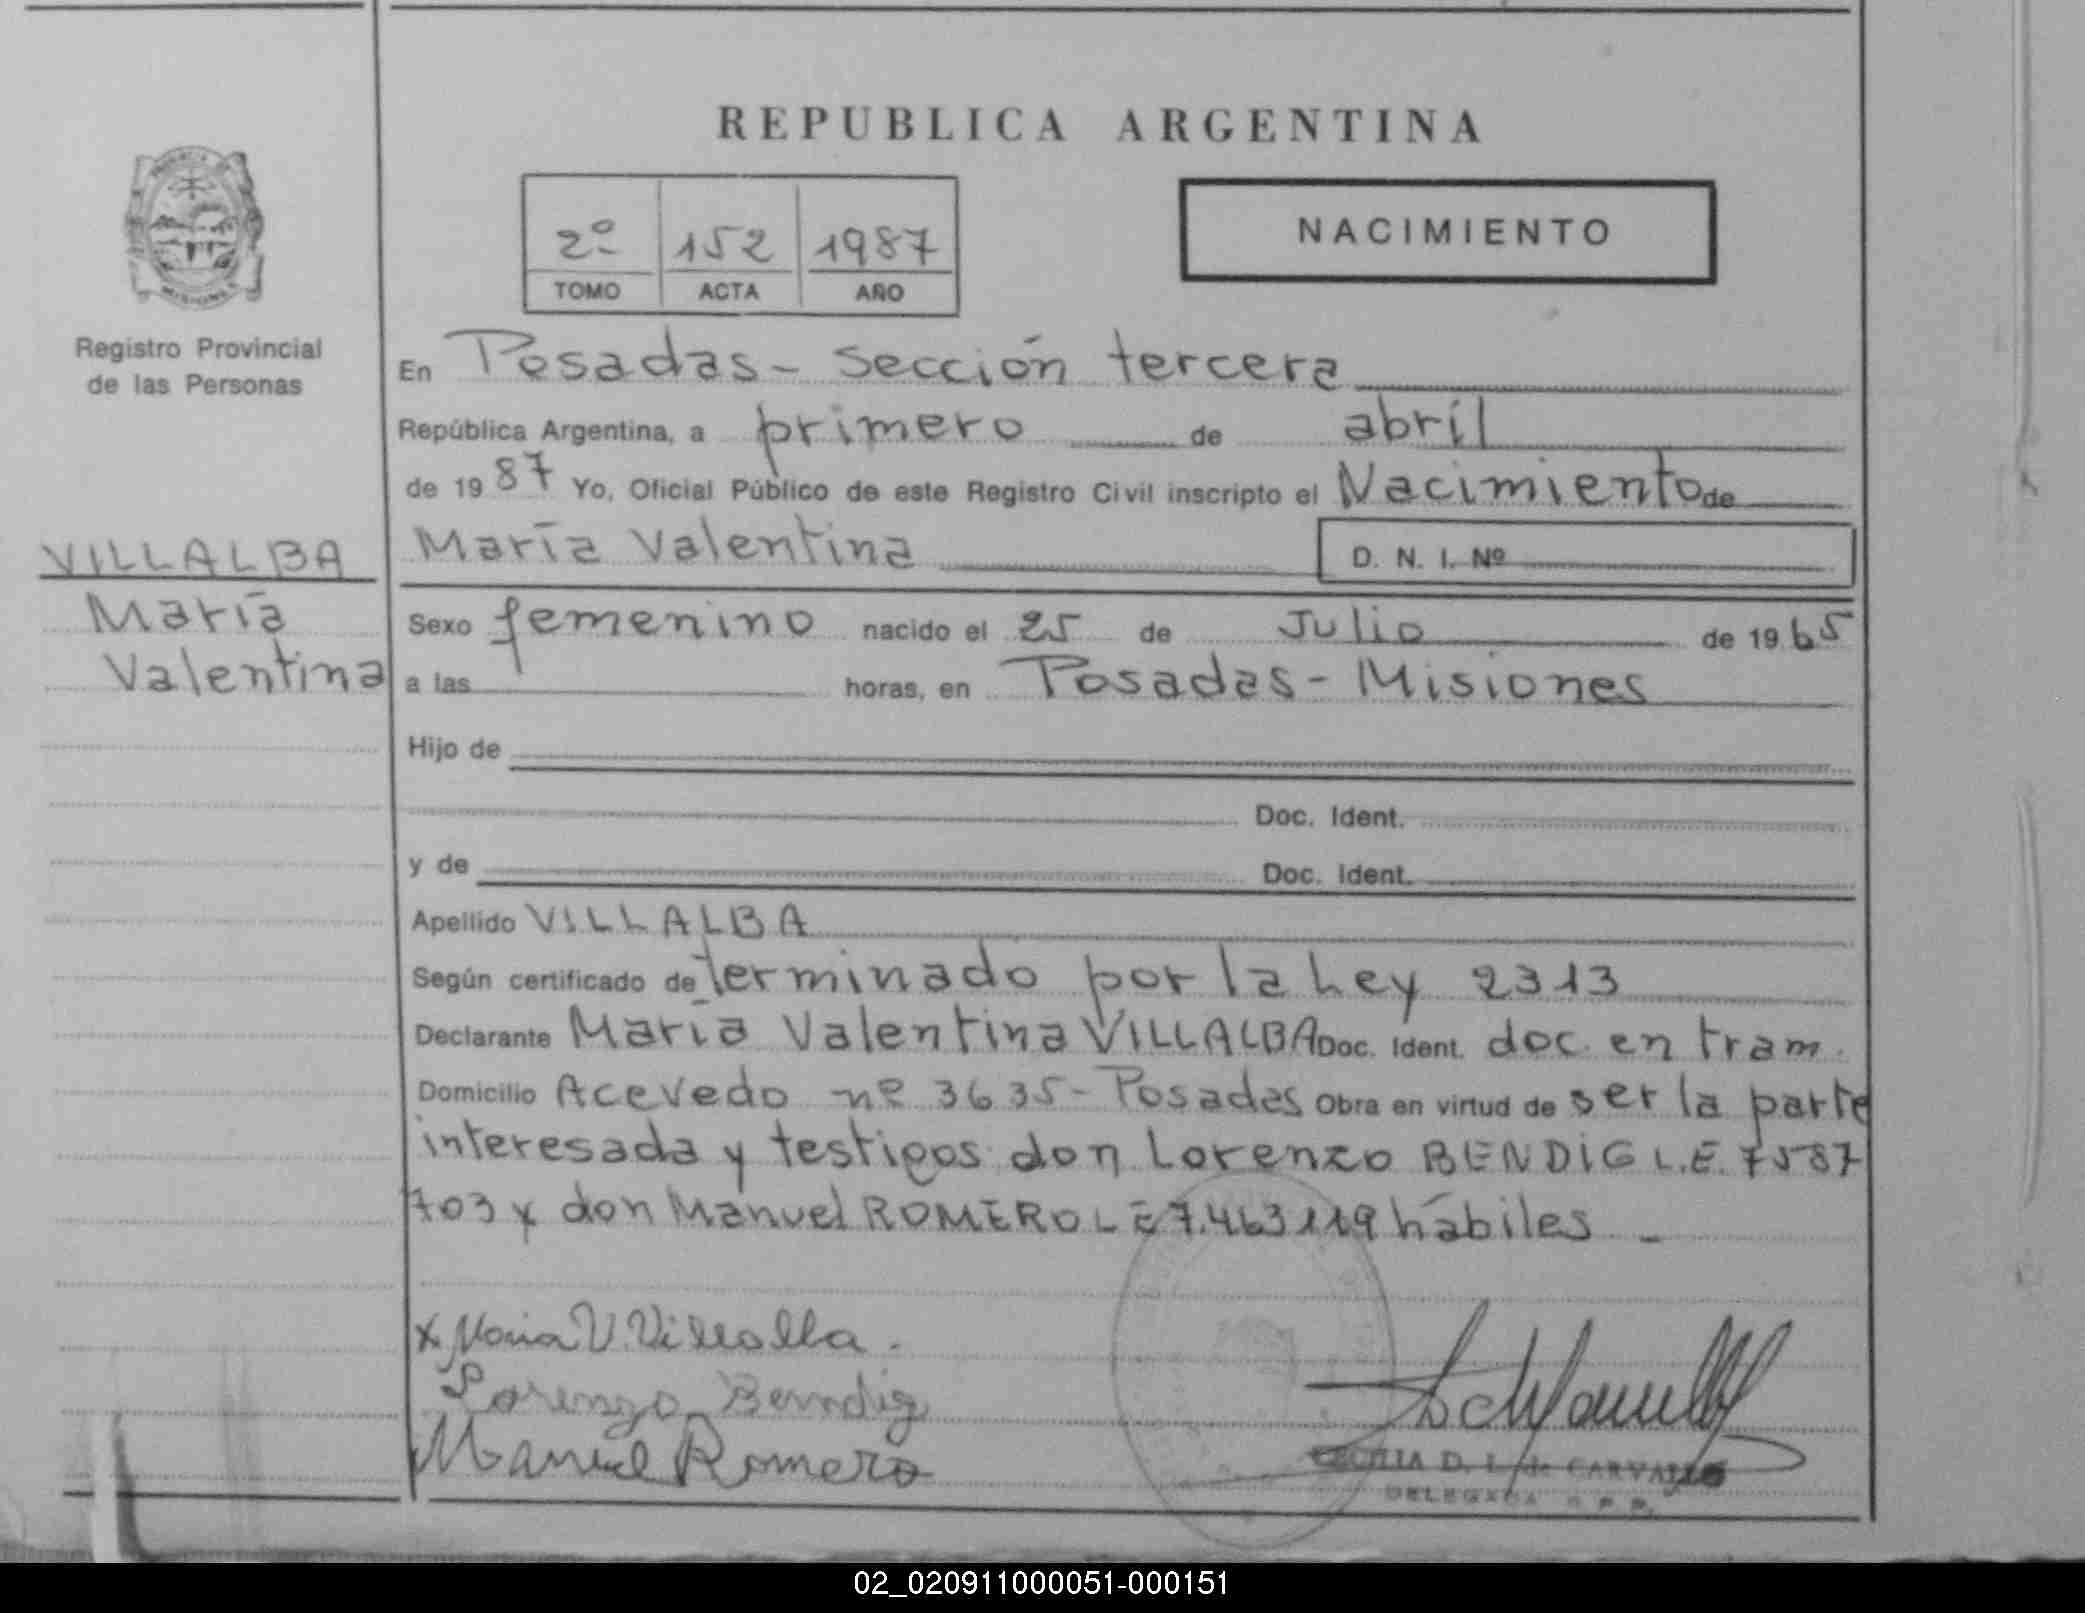 REPUBLICA ARGENTINA
2º 152 1987
TOMO ACTA AÑO
NACIMIENTO
PROVINCIA DE
MISIONES
Registro Provincial
de las Personas
VILLALBA
María
Valentina
En Posadas - Sección tercera
República Argentina, a primero de abríl
de 1987 Yo, Oficial Público de este Registro Civil inscripto el Nacimiento de
María Valentina D. N. I. Nº
Sexo femenino nacido el 25 de Julio de 1965
a las horas, en Posadas - Misiones
Hijo de
Doc. Ident.
y de Doc. Ident.
Apellido VILLALBA
Según certificado determinado por la Ley 2313
Declarante María Valentina VILLALBA Doc. Ident. doc. en tram.
Domicilio Acevedo nº 3635 - Posadas Obra en virtud de ser la parte
interesada y testigos don Lorenzo BENDIG L.E. 7587
703 y don Manuel ROMERO L E 7.463119 hábiles -
x Maria V. Villalba.
Lorenzo Bendig
Manuel Romero
D. L. de CARVALLO
DELEGADA R. P. P.
02_020911000051-000151